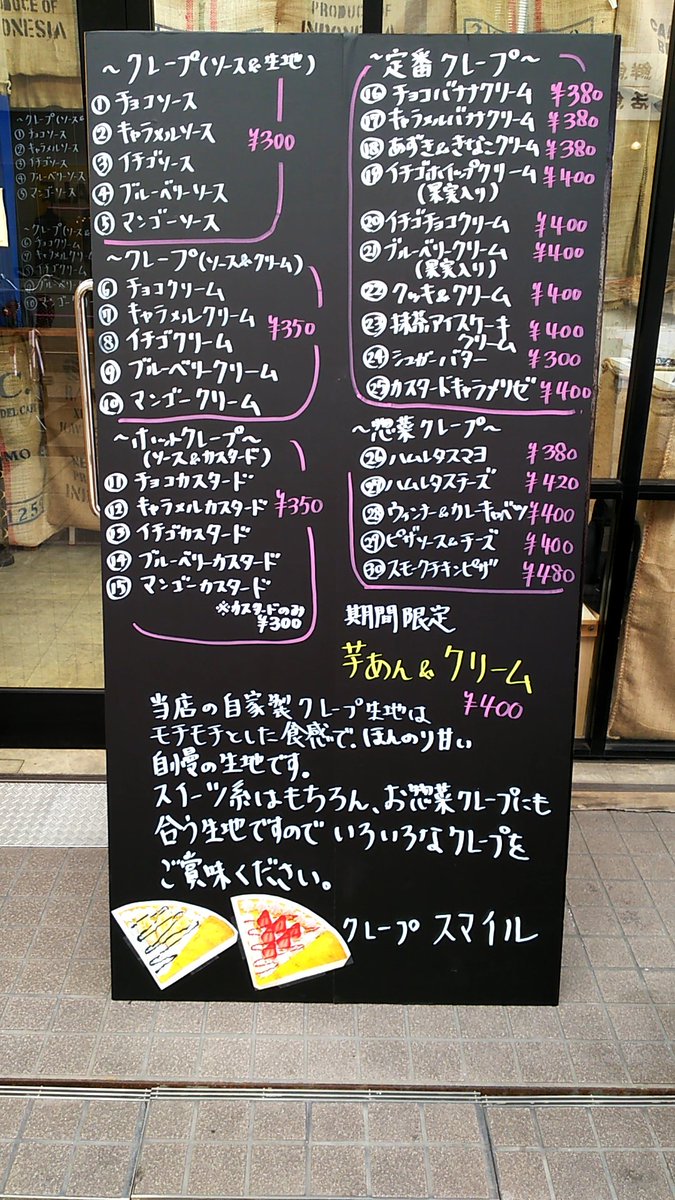 ～クレープ(ソース&生地)
① チョコソース
② キャラメルソース
③ イチゴソース
④ ブルーベリーソース
⑤ マンゴーソース
¥300
～クレープ(ソース&クリーム)
⑥ チョコクリーム
⑦ キャラメルクリーム
⑧ イチゴクリーム
⑨ ブルーベリークリーム
⑩ マンゴークリーム
¥350
～ホットクレープ～
(ソース&カスタード)
⑪ チョコカスタード
⑫ キャラメルカスタード
⑬ イチゴカスタード
⑭ ブルーベリーカスタード
⑮ マンゴーカスタード
¥350
※カスタードのみ
¥300
～定番クレープ～
⑯ チョコバナナクリーム ¥380
⑰ キャラメルバナナクリーム ¥380
⑱ あずき&きなこクリーム ¥380
⑲ イチゴホイップクリーム ¥400
(果実入り)
⑳ イチゴチョコクリーム ¥400
㉑ ブルーベリークリーム ¥400
(果実入り)
㉒ クッキ&クリーム ¥400
㉓ 抹茶アイスケーキ
クリーム ¥400
㉔ シュガーバター ¥300
㉕ カスタードキャラメリゼ ¥400
～惣菜クレープ～
㉖ ハムレタスマヨ ¥380
㉗ ハムレタスチーズ ¥420
㉘ ウィンナー&カレーキャベツ ¥400
㉙ ピザソース&チーズ ¥400
㉚ スモークチキンピザ ¥480
期間限定
芋あん&クリーム
¥400
当店の自家製クレープ生地は
モチモチとした食感で、ほんのり甘い
自慢の生地です。
スイーツ系はもちろん、お惣菜クレープにも
合う生地ですのでいろいろなクレープを
ご賞味ください。
クレープ スマイル